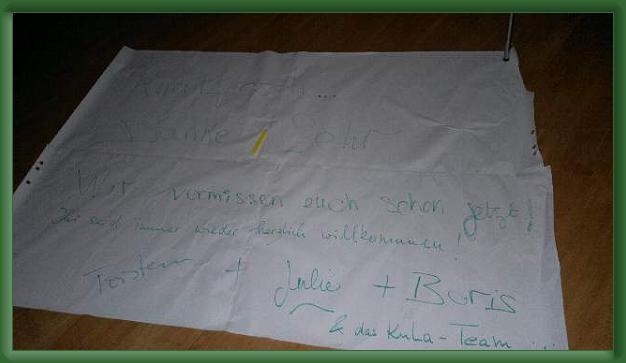 Danke, Sehr
Wir vermissen euch schon jetzt!
Ihr seid immer wieder herzlich willkommen!
Torsten + Julie + Boris
& das KuHa-Team...